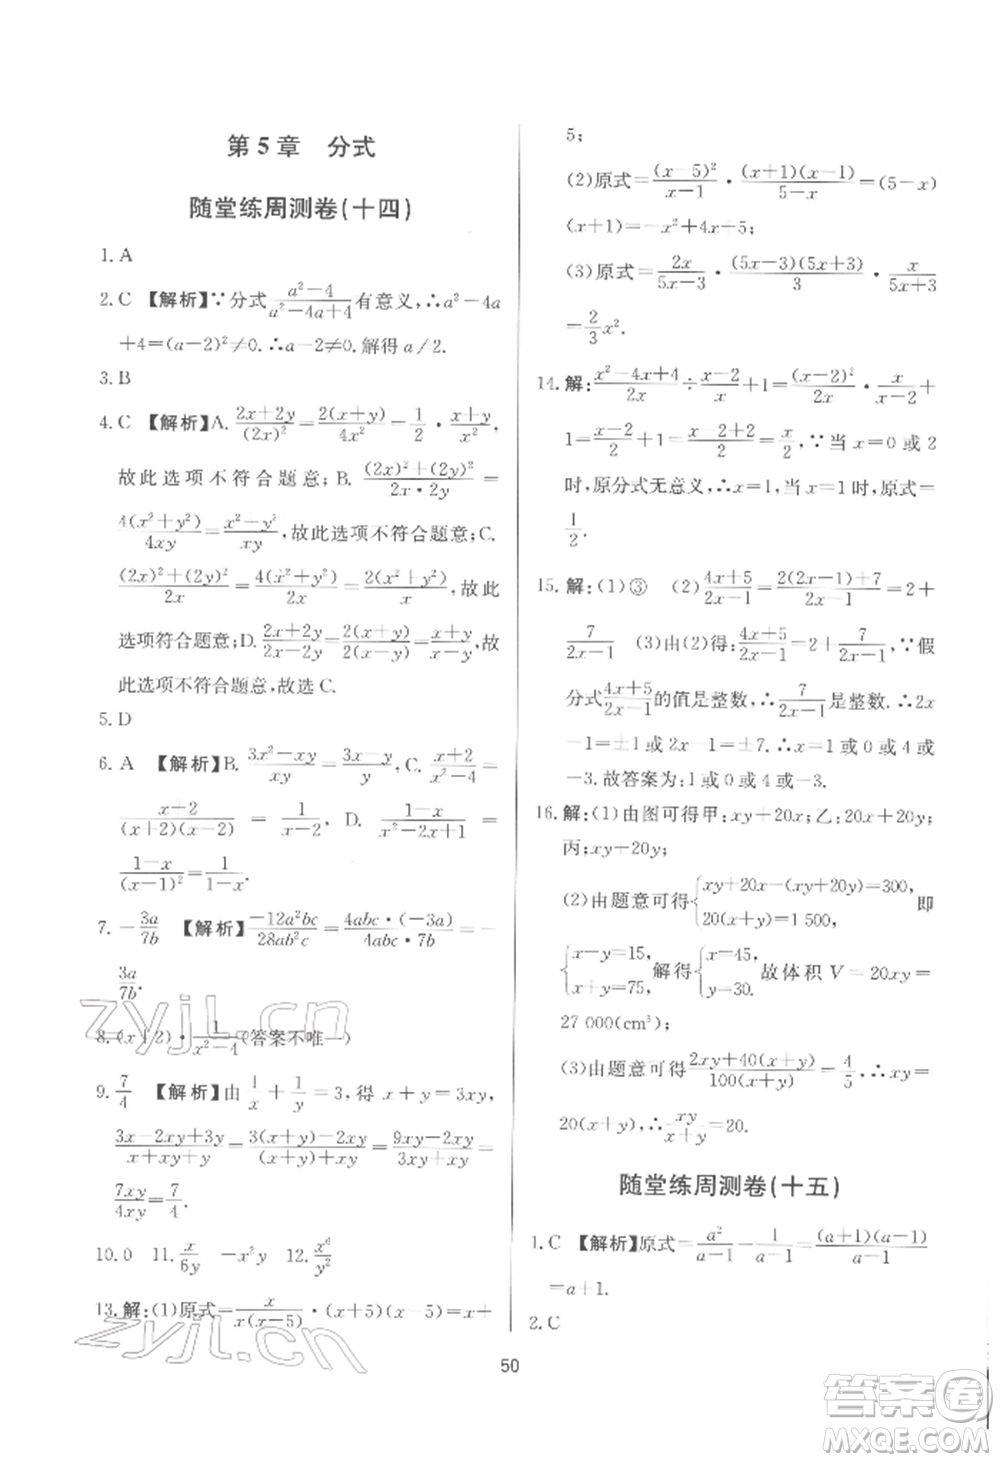 第 5 章　分式
随堂练周测卷(十四)
1. A
2. C 【解析】∵分式 (a²−4)/(a²−4a+4) 有意义,∴a²−4a
+4=(a−2)²≠0.∴a−2≠0.解得 a/2.
3. B
4. C 【解析】A. (2x+2y)/(2x)² = 2(x+y)/4x² = 1/2 · (x+y)/x²,
故此选项不符合题意;B. ((2x)²+(2y)²)/(2x·2y) =
4(x²+y²)/4xy = (x²+y²)/xy,故此选项不符合题意;C.
((2x)²+(2y)²)/2x = 4(x²+y²)/2x = 2(x²+y²)/x,故此
选项符合题意;D. (2x+2y)/(2x−2y) = 2(x+y)/2(x−y) = (x+y)/(x−y),故
此选项不符合题意,故选 C.
5. D
6. A 【解析】B. (3x²−xy)/xy = (3x−y)/y; C. (x+2)/(x²−4) =
(x−2)/((x+2)(x−2)) = 1/(x−2); D. (1−x)/(x²−2x+1) =
(1−x)/(x−1)² = 1/(1−x).
7. −3a/7b 【解析】−12a²bc/28ab²c = 4abc·(−3a)/(4abc·7b) = −
3a/7b.
8. (x+2)·1/(x²−4)(答案不唯一)
9. 7/4 【解析】由 1/x + 1/y = 3,得 x+y=3xy,
(3x−2xy+3y)/(x+xy+y) = (3(x+y)−2xy)/(x+y+xy) = (9xy−2xy)/(3xy+xy) =
7xy/4xy = 7/4.
10. 0　11. x/6y　−x³y　12. x⁶/y²
13. 解:(1)原式= x/(x(x−5)) ·(x+5)(x−5)=x+
5;
(2)原式= (x−5)²/(x−1) · (x+1)(x−1)/(5−x) =(5−x)
(x+1)=−x²+4x+5;
(3)原式= 2x/(5x−3) · (5x−3)(5x+3)/3 · x/(5x+3)
= 2/3 x².
14. 解: (x²−4x+4)/2x ÷ (x−2)/x +1= (x−2)²/2x · x/(x−2) +
1= (x−2)/2 +1= (x−2+2)/2 = x/2,∵当 x=0 或 2
时,原分式无意义,∴x=1,当 x=1 时,原式=
1/2.
15. 解:(1)③　(2) (4x+5)/(2x−1) = (2(2x−1)+7)/(2x−1) =2+
7/(2x−1)　(3)由(2)得: (4x+5)/(2x−1) =2+ 7/(2x−1),∵假
分式 (4x+5)/(2x−1) 的值是整数,∴ 7/(2x−1) 是整数.∴2x
−1=±1 或 2x−1=±7.∴x=1 或 0 或 4 或
−3.故答案为:1 或 0 或 4 或−3.
16. 解:(1)由图可得甲:xy+20x;乙:20x+20y;
丙:xy+20y;
(2)由题意可得{xy+20x−(xy+20y)=300, 20(x+y)=1 500, 即
{x−y=15, x+y=75, 解得{x=45, y=30. 故体积 V=20xy=
27 000(cm³);
(3)由题意可得 (2xy+40(x+y))/100(x+y) = 4/5,∴xy=
20(x+y),∴ xy/(x+y) =20.
随堂练周测卷(十五)
1. C 【解析】原式= a²/(a−1) − 1/(a−1) = (a+1)(a−1)/(a−1)
=a+1.
2. C
50
zyjl.cn
zyjl.cn
答案卷
MXQE.COM